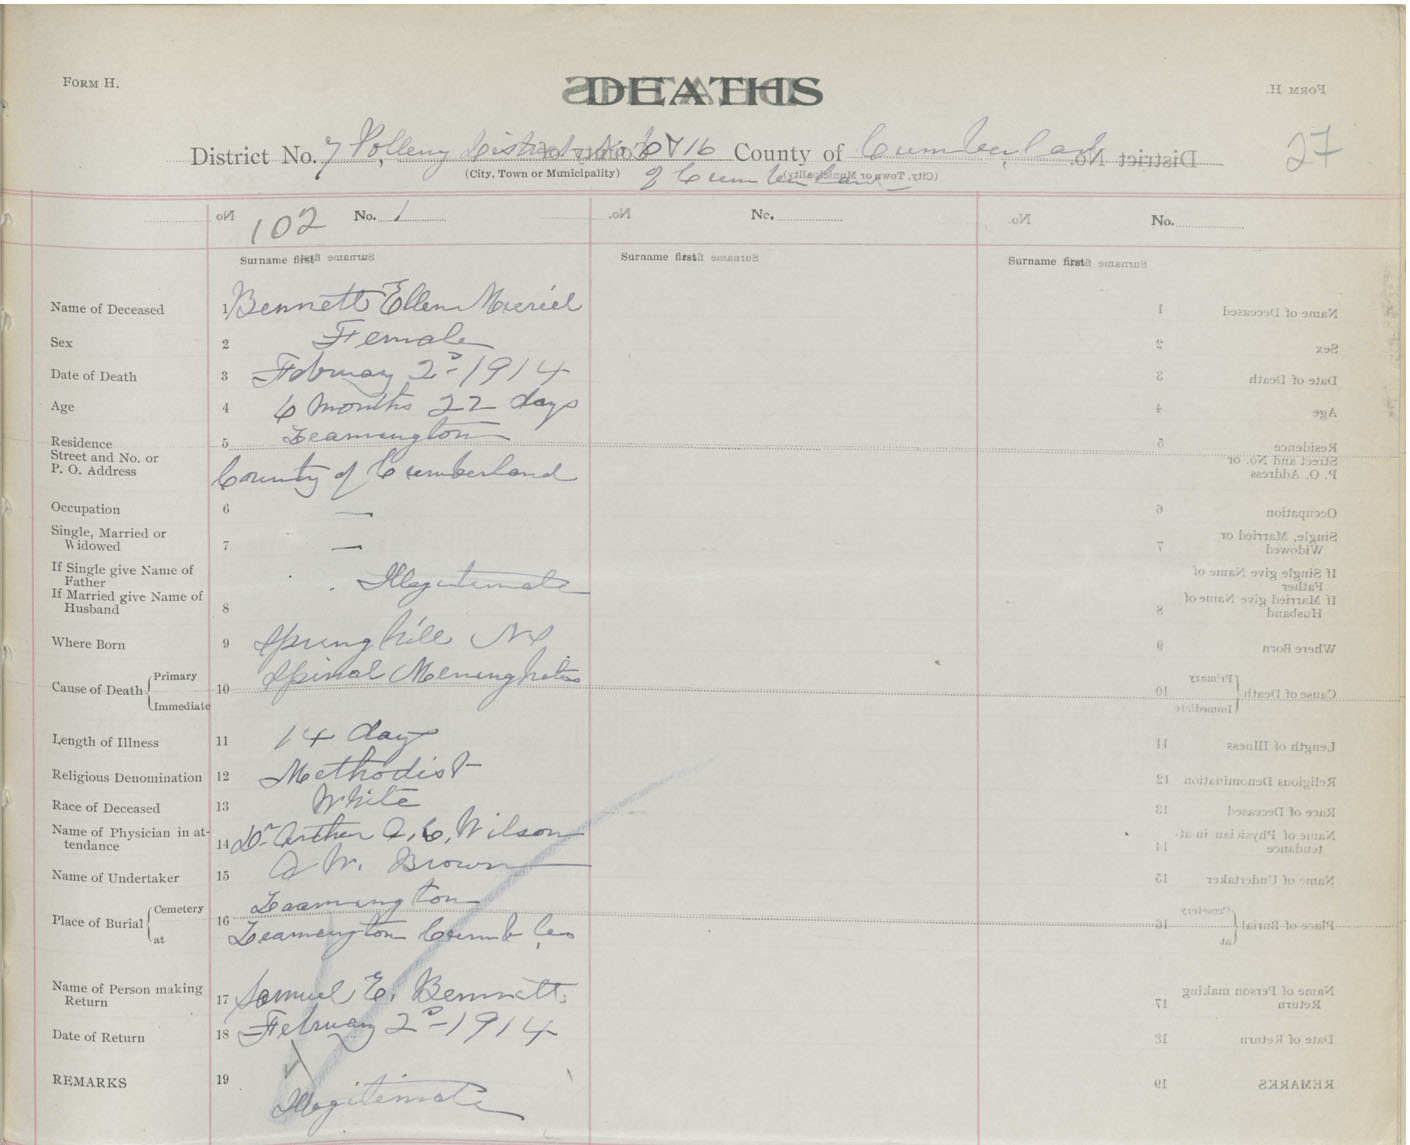 FORM H.
DEATHS
District No. 7 Polling District No 16 County of Cumberland
(City, Town or Municipality)
of Cumberland
27
102 No. 1 No. No.
Surname first Surname first Surname first
Name of Deceased 1 Bennett Ellen Meriel
Sex 2 Female
Date of Death 3 February 2nd 1914
Age 4 6 months 22 days
Residence 5 Leamington
Street and No. or
P. O. Address County of Cumberland
Occupation 6 —
Single, Married or
Widowed 7 —
If Single give Name of
Father Illegitimate
If Married give Name of
Husband 8
Where Born 9 Springhill NS
Cause of Death { Primary Spinal Meninghetis
10
Immediate
Length of Illness 11 14 days
Religious Denomination 12 Methodist
Race of Deceased 13 White
Name of Physician in at-
tendance 14 Dr Arther A. C. Wilson
Name of Undertaker 15 A W. Brown
Place of Burial { Cemetery Leamington
16
at Leamington Cumb Co
Name of Person making
Return 17 Samuel E. Bennett
Date of Return 18 February 2nd 1914
REMARKS 19
Illegitimate